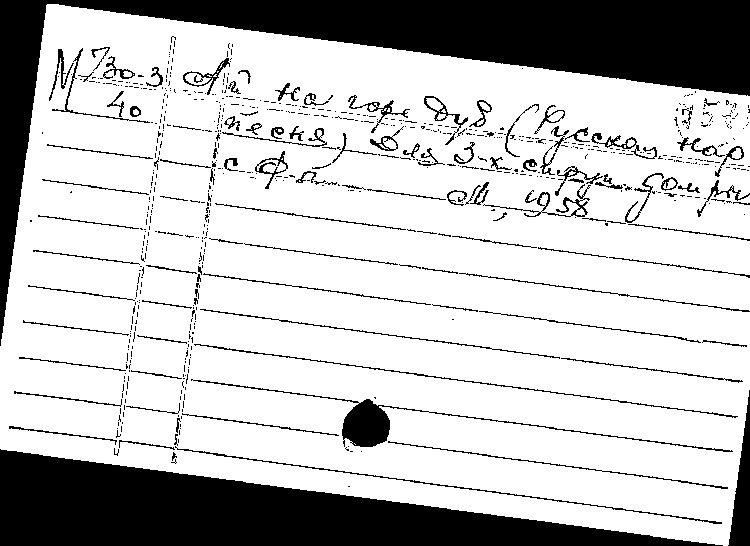 М 730-3 Ай на горе дуб (Русская нар
40 песня) Для 3-х струн домры
с Фп. М., 1958.